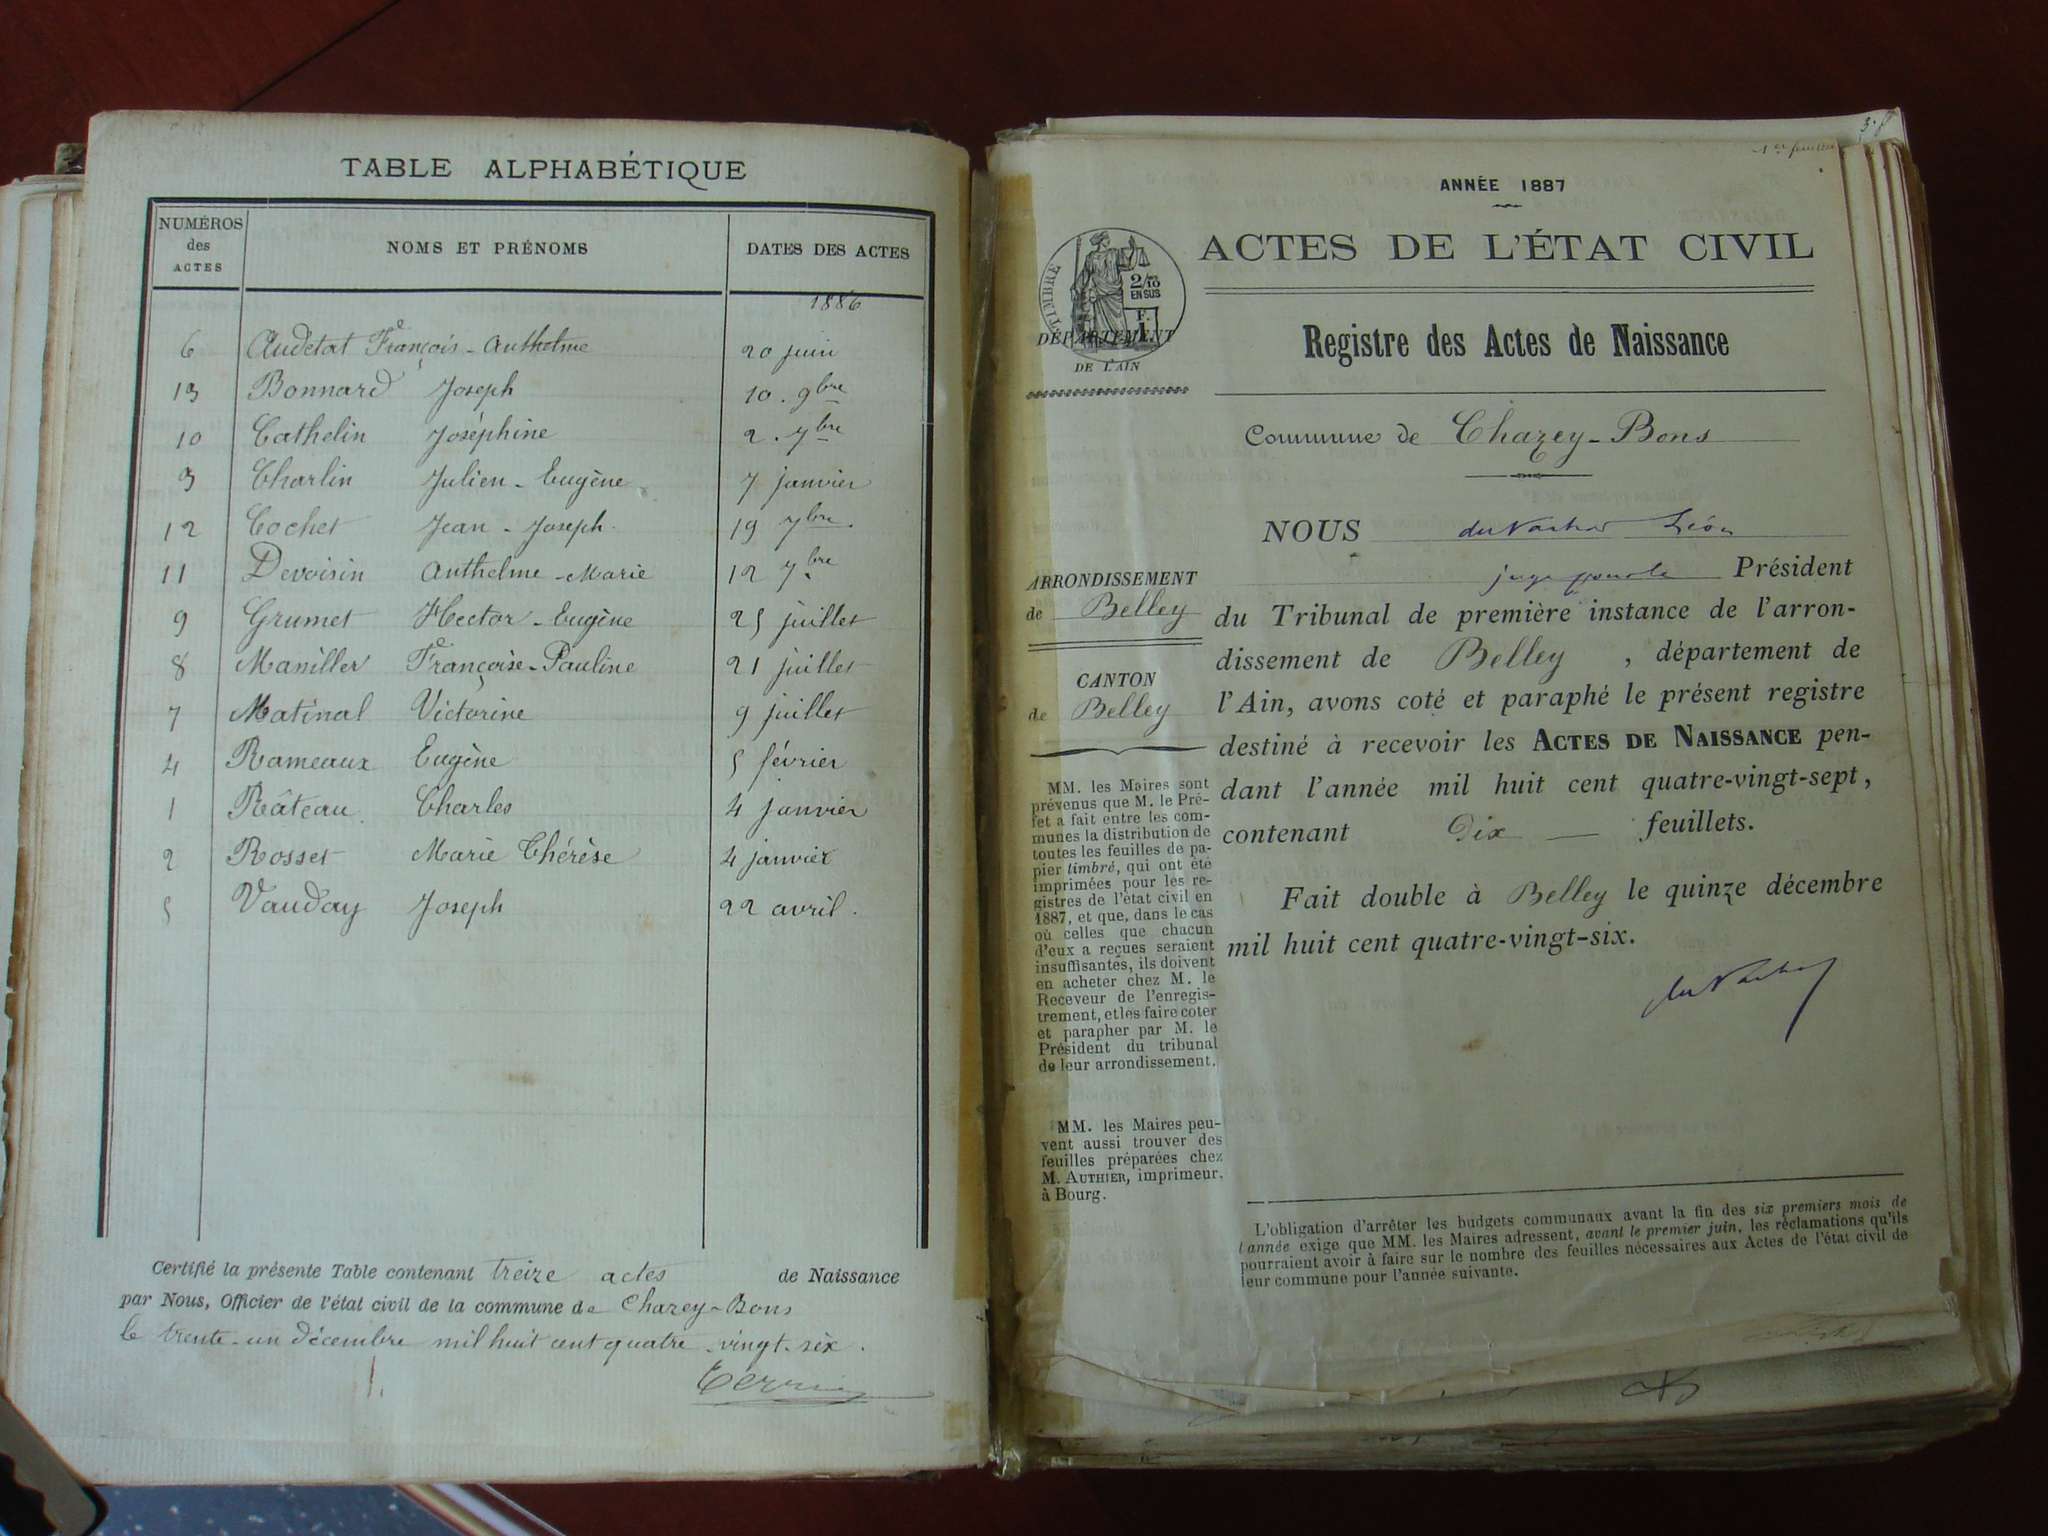 TABLE ALPHABÉTIQUE
NUMÉROS des ACTES NOMS ET PRÉNOMS DATES DES ACTES
1886
6 Audétat François-Anthelme 20 juin
13 Bonnard Joseph 10. 9bre
10 Cathelin Joséphine 2. 7bre
3 Charlin Julien-Eugène 7 janvier
12 Cochet Jean-Joseph. 19 7bre.
11 Devoisin Anthelme-Marie 12 7bre
9 Grumet Hector-Eugène 25 juillet
8 Maniller Françoise-Pauline 21 juillet
7 Matinal Victorine 9 juillet
4 Rameaux Eugène 5 février
1 Râteau Charles 4 janvier
2 Rosset Marie Thérèse 4 janvier
5 Vauday Joseph 22 avril.
Certifié la présente Table contenant treize actes de Naissance
par Nous, Officier de l'état civil de la commune de Chazey-Bons
le trente-un décembre mil huit cent quatre-vingt-six.
ANNÉE 1887
ACTES DE L'ÉTAT CIVIL
TIMBRE
2/10
EN SUS
F.
1
DÉPARTEMENT
DE L'AIN
Registre des Actes de Naissance
Commune de Chazey-Bons
NOUS Léon
Président
du Tribunal de première instance de l'arron-
dissement de Belley, département de
l'Ain, avons coté et paraphé le présent registre
destiné à recevoir les ACTES DE NAISSANCE pen-
dant l'année mil huit cent quatre-vingt-sept,
contenant Dix — feuillets.
Fait double à Belley le quinze décembre
mil huit cent quatre-vingt-six.
ARRONDISSEMENT
de Belley
CANTON
de Belley
MM. les Maires sont
prévenus que M. le Pré-
fet a fait entre les com-
munes la distribution de
toutes les feuilles de pa-
pier timbré, qui ont été
imprimées pour les re-
gistres de l'état civil en
1887, et que, dans le cas
où celles que chacun
d'eux a reçues seraient
insuffisantes, ils doivent
en acheter chez M. le
Receveur de l'enregis-
trement, et les faire coter
et parapher par M. le
Président du tribunal
de leur arrondissement.
MM. les Maires peu-
vent aussi trouver des
feuilles préparées chez
M. AUTHIER, imprimeur,
à Bourg.
L'obligation d'arrêter les budgets communaux avant la fin des six premiers mois de
l'année exige que MM. les Maires adressent, avant le premier juin, les réclamations qu'ils
pourraient avoir à faire sur le nombre des feuilles nécessaires aux Actes de l'état civil de
leur commune pour l'année suivante.